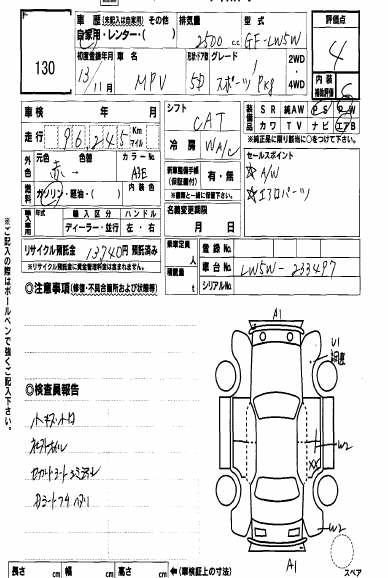 130
車歴 (未記入は自家用) その他
自家用・レンター・( )
排気量 2500 cc
型式 GF-LW5W
評価点 4
初度登録年月 13/11月
車名 MPV
形状・ドア数 5D
グレード スポーツPkg
2WD・4WD
内装補助評価
車検 年 月
走行 96,245 Km マイル
シフト CAT
冷房 WA/C
装備品
SR 純AW PS PW
カワ TV ナビ エアB
※純正品に限り該当に○をつけて下さい。
外色 元色 赤→ 色替 カラーNo. A3E
燃料 ガソリン・軽油・( ) 内装色
新車整備手帳 (保証書付) 有・無
※書類と一緒に保管して下さい。
セールスポイント
☆ A/W
☆ エアロパーツ
輸入車用 年式 輸入区分 ハンドル
ディーラー・並行 左・右
名義変更期限 月 日
リサイクル預託金 13740円 預託済み
※リサイクル預託金に資金管理料金は含まれません。
乗車定員 人
積載量 t
登録No.
車台No. LW5W-233497
シリアルNo.
◎注意事項 (修復・不具合箇所および状態等)
※ご記入の際はボールペンで強くご記入下さい。
A1
U1
W2
XX
W2
A1
◎検査員報告
長さ cm 幅 cm 高さ cm ←(車検証上の寸法)
スペア